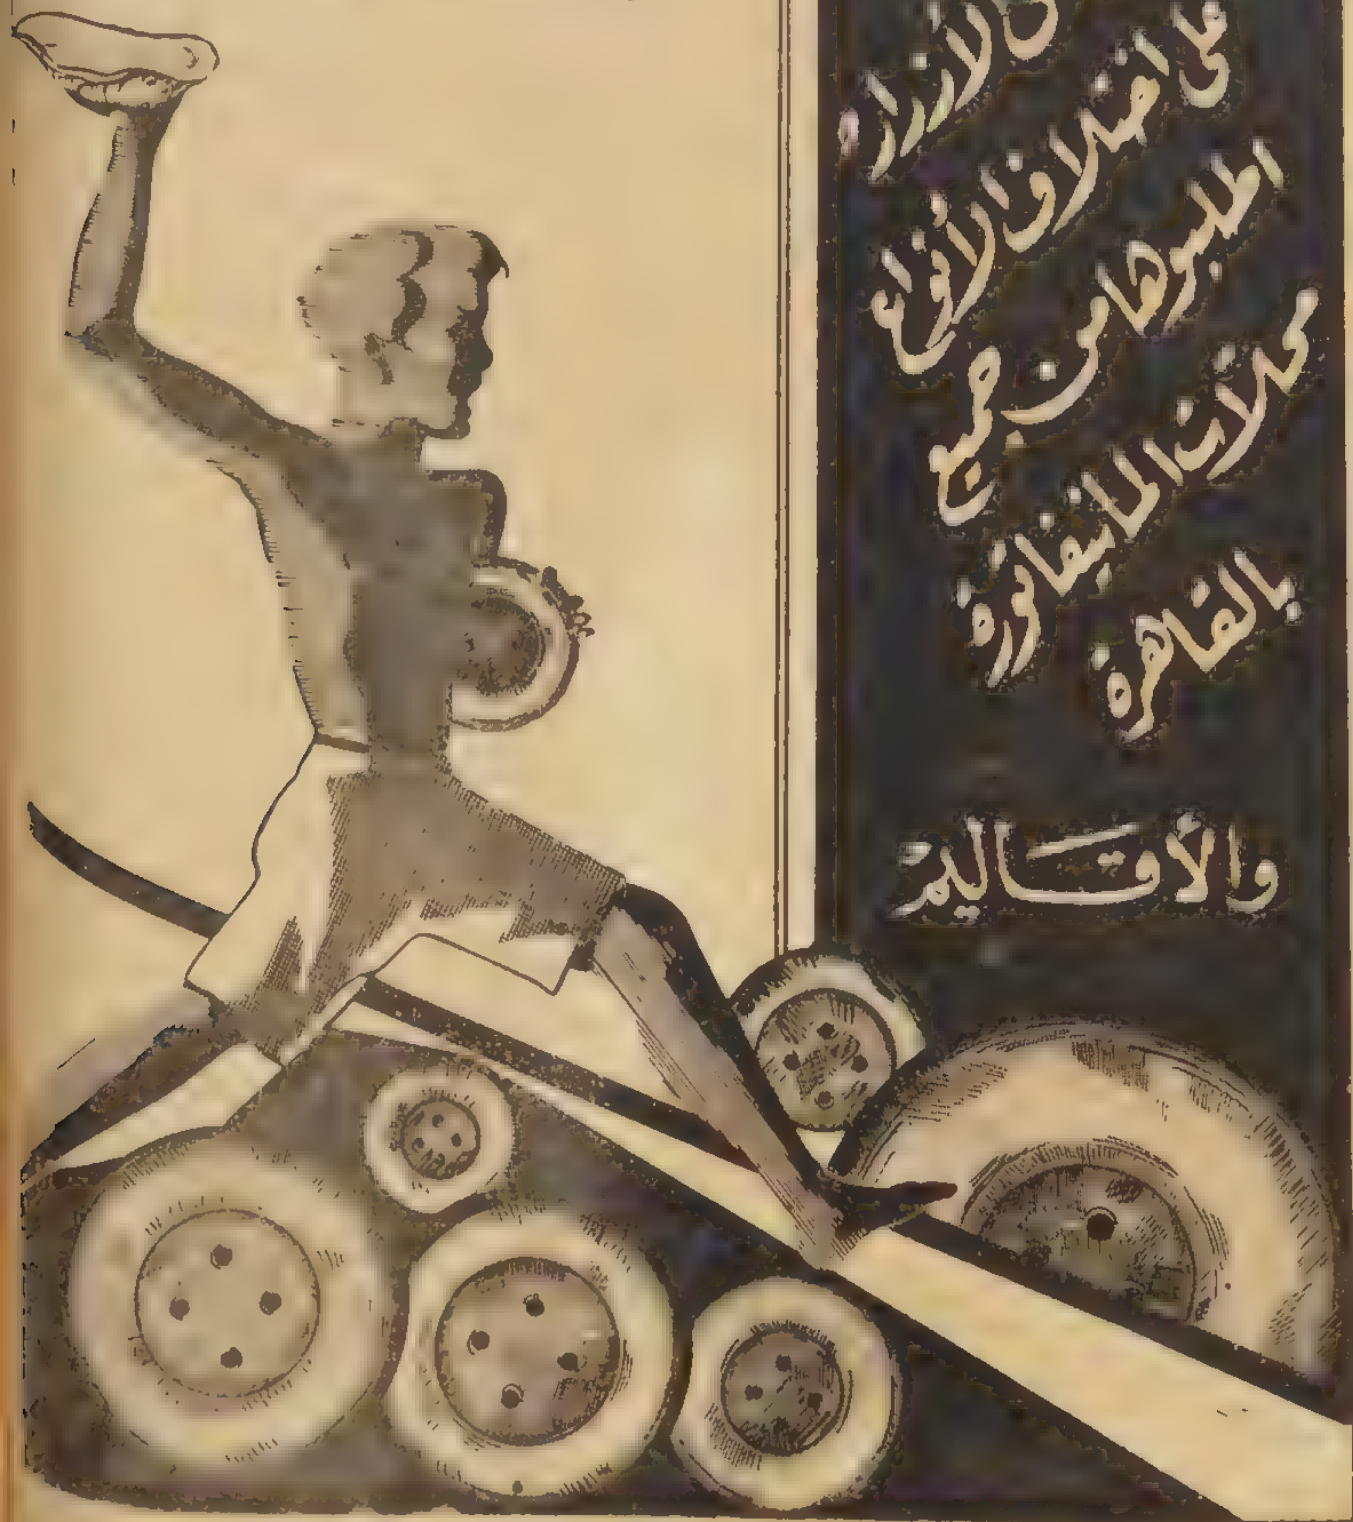 الأزرار
على اختلاف الأنواع
اطلبوها من جميع
محلات المانيفاتورة
بالقاهرة
والأقاليم